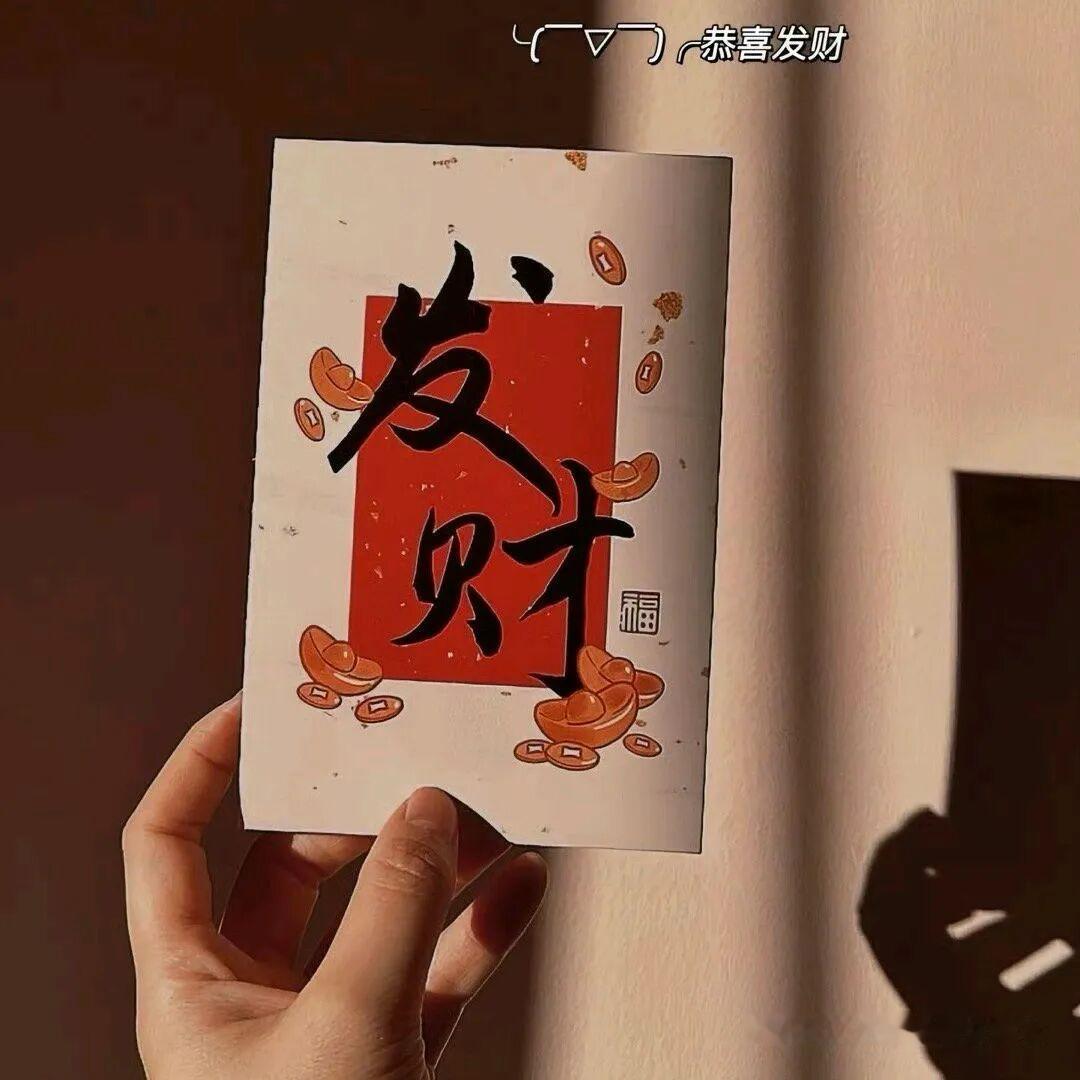 ╰(￣▽￣)╭恭喜发财
发
财
福